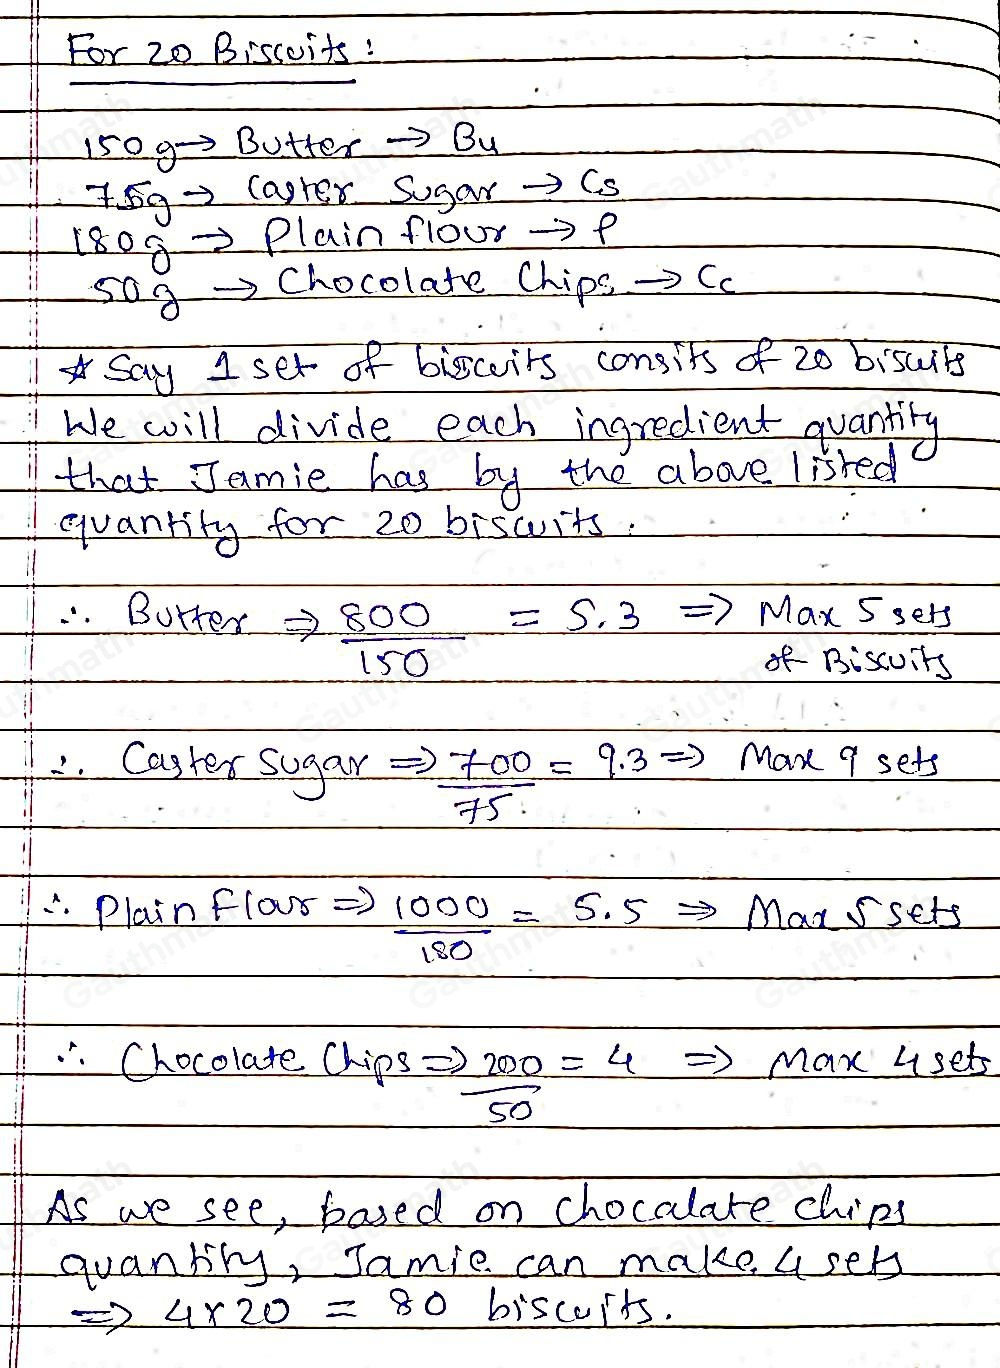 For 20 Biscuits:
150g → Butter → Bu
75g → Caster Sugar → Cs
180g → Plain flour → P
50g → Chocolate Chips → Cc
☆ Say 1 set of biscuits consits of 20 biscuits
We will divide each ingredient quantity
that Jamie has by the above listed
quantity for 20 biscuits.
∴ Butter ⇒ 800/150 = 5.3 ⇒ Max 5 sets
of Biscuits
∴ Caster Sugar ⇒ 700/75 = 9.3 ⇒ Max 9 sets
∴ Plain Flour ⇒ 1000/180 = 5.5 ⇒ Max 5 sets
∴ Chocolate Chips ⇒ 200/50 = 4 ⇒ Max 4 sets
As we see, based on chocalate chips
quantity, Jamie can make 4 sets
⇒ 4x20 = 80 biscuits.